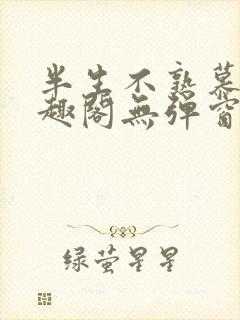 半生不熟慕
趣阁無弹窗
绿萤星星